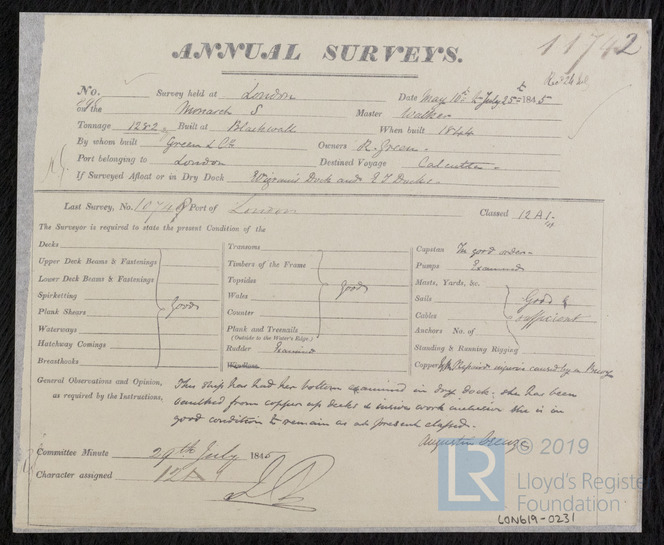 11742
ANNUAL SURVEYS.
No. Survey held at London Date May 16th to July 25th 1845
on the Monarch S Master Walker
Tonnage 1282 Built at Blackwall When built 1844
By whom built Green & Co Owners R. Green.
Port belonging to London Destined Voyage Calcutta.
If Surveyed Afloat or in Dry Dock Wigram's Dock and Docks
Last Survey, No. 10748 Port of London Classed 12 A1.
The Surveyor is required to state the present Condition of the
Decks
Upper Deck Beams & Fastenings
Lower Deck Beams & Fastenings
Spirketting
Plank Shears
Waterways
Hatchway Comings
Breasthooks
good
Transoms
Timbers of the Frame
Topsides
Wales
Counter
Plank and Treenails
(Outside to the Water's Edge.)
Rudder Examined
good
Capstan In good order
Pumps Examined
Masts, Yards, &c.
Sails
Cables
Anchors No. of
Standing & Running Rigging
Good & sufficient
Copper Repaired injuries caused by a
General Observations and Opinion,
as required by the Instructions,
This ship has had her bottom examined in dry dock. she has been
caulked from copper up decks & inside work inclusive she is in
good condition to remain as at present classed.
Augustin Creuze
Committee Minute 29th July 1845
Character assigned 12 A
© 2019
LR
Lloyd's Register
Foundation
LON619-0231